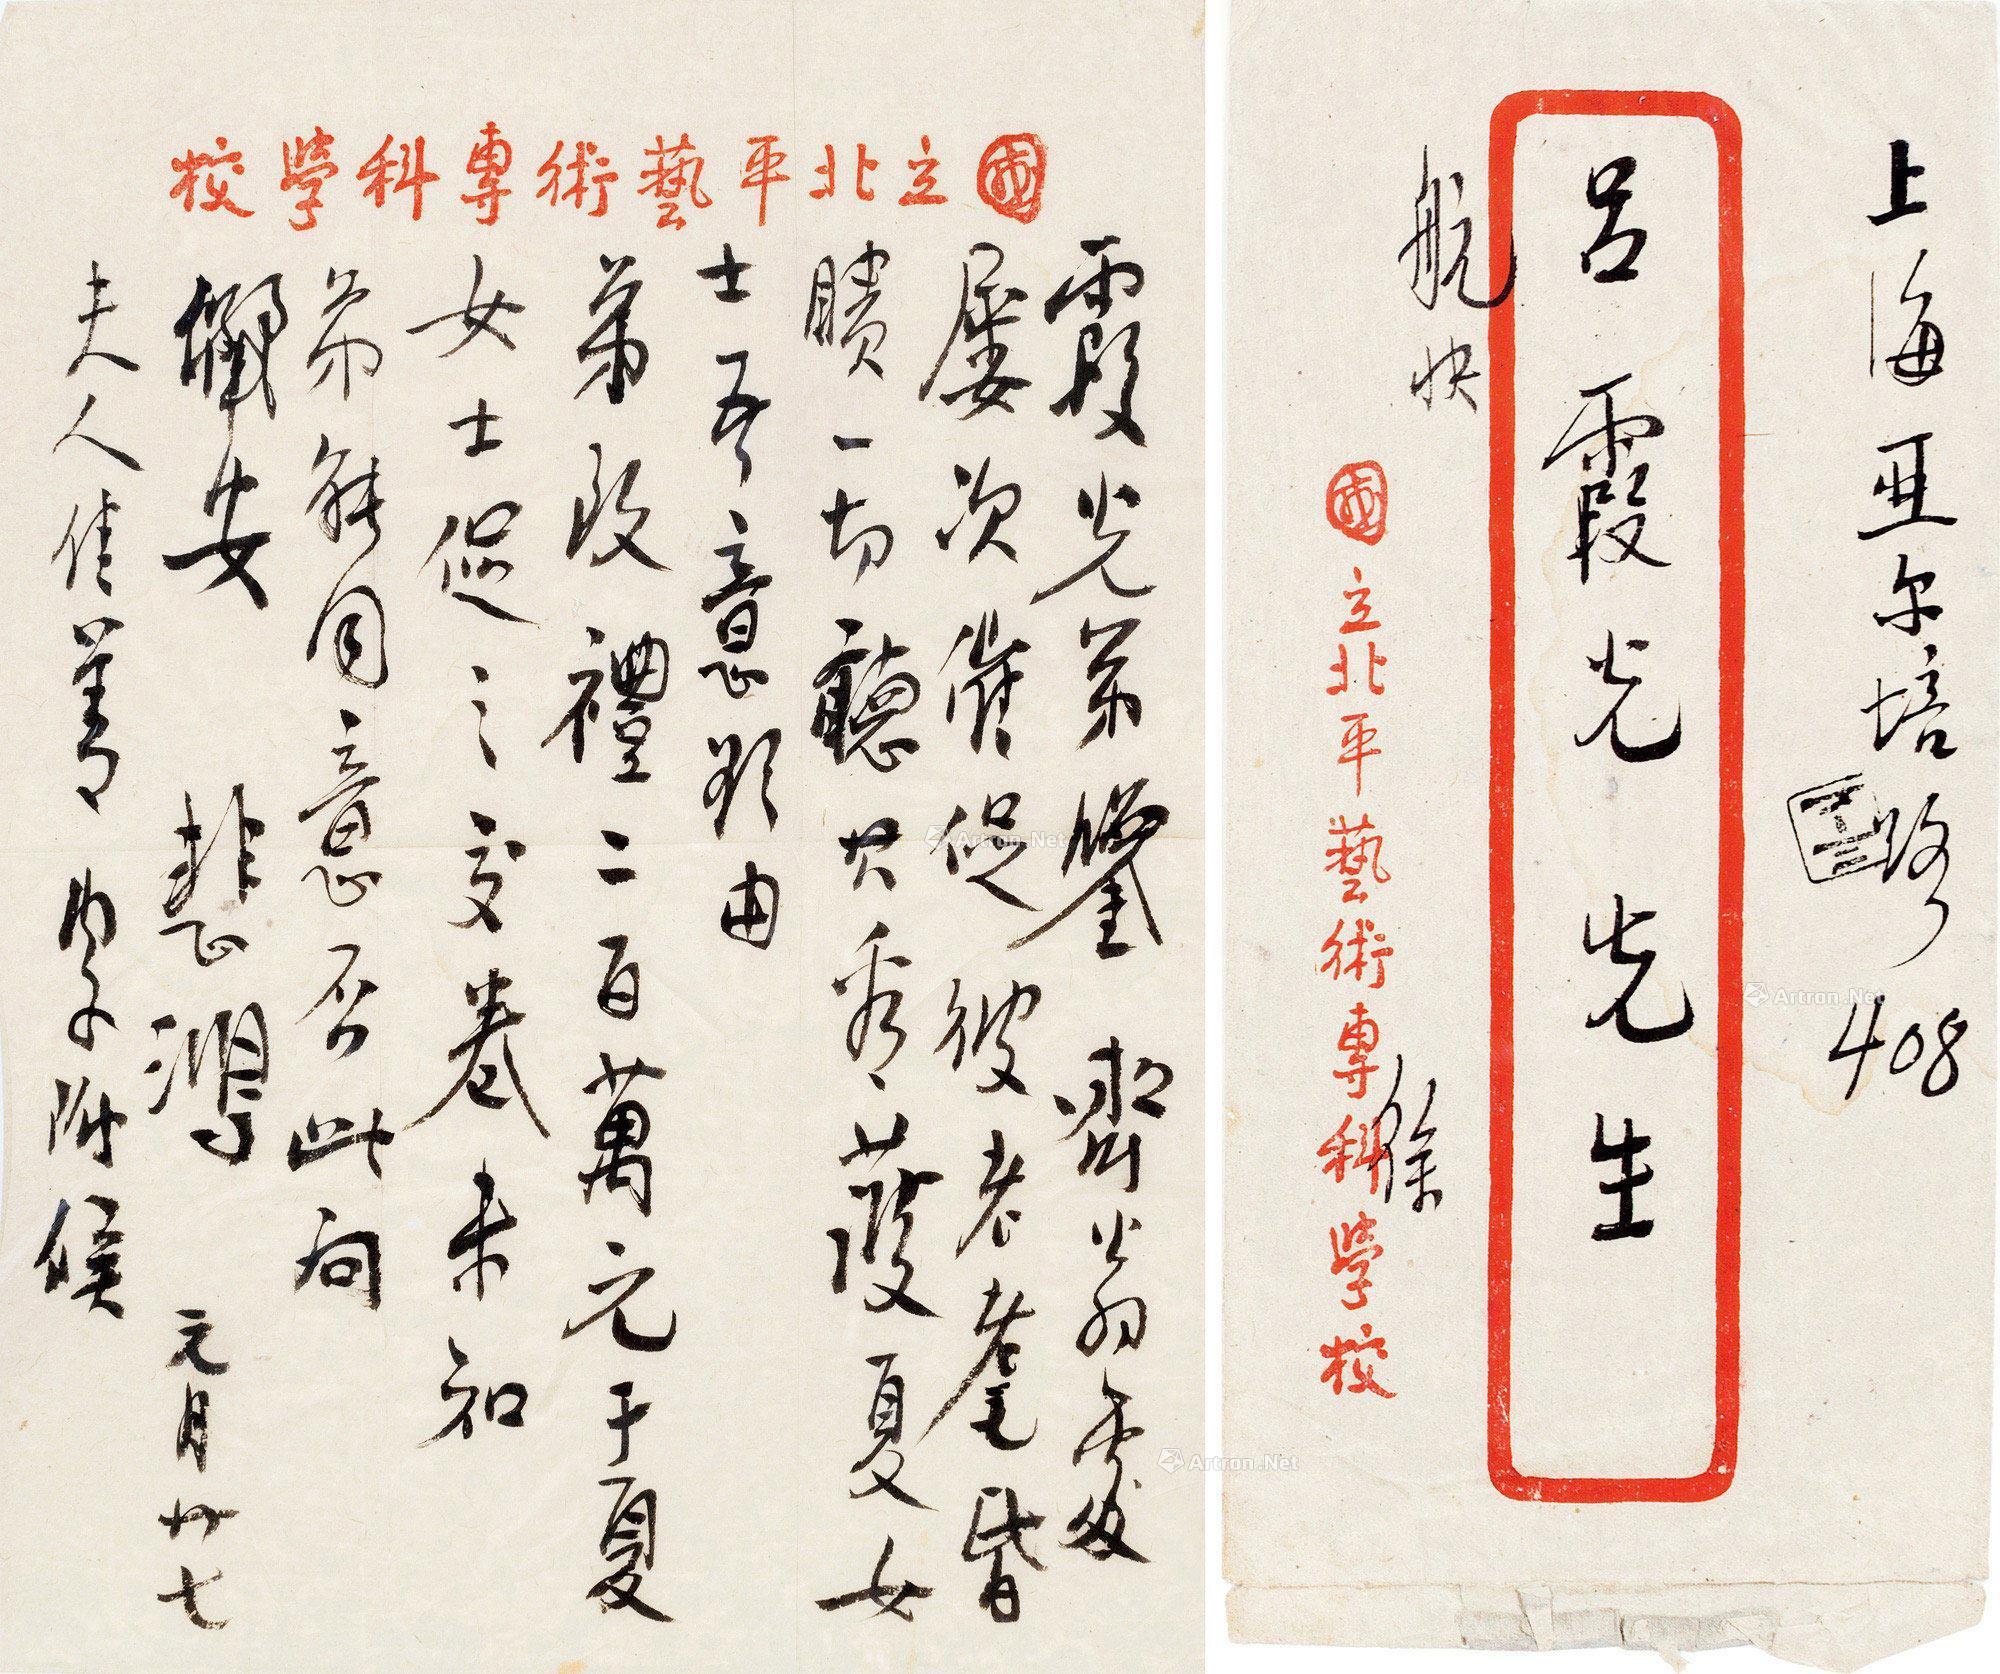 國立北平藝術專科學校
霞光弟鑒 齊公翁處
屢次催促彼老耄昏
聵一切聽其看護夏女
士吾意欲由
弟致禮二百萬元于夏
女士促之交卷未知
弟能同意否此詢
儷安
悲鴻 元月廿七
夫人佳善 內子附候
上海亚尔培路408
呂霞光先生
航快
徐
國立北平藝術專科學校
Artron.Net
Artron.Net
Artron.Net